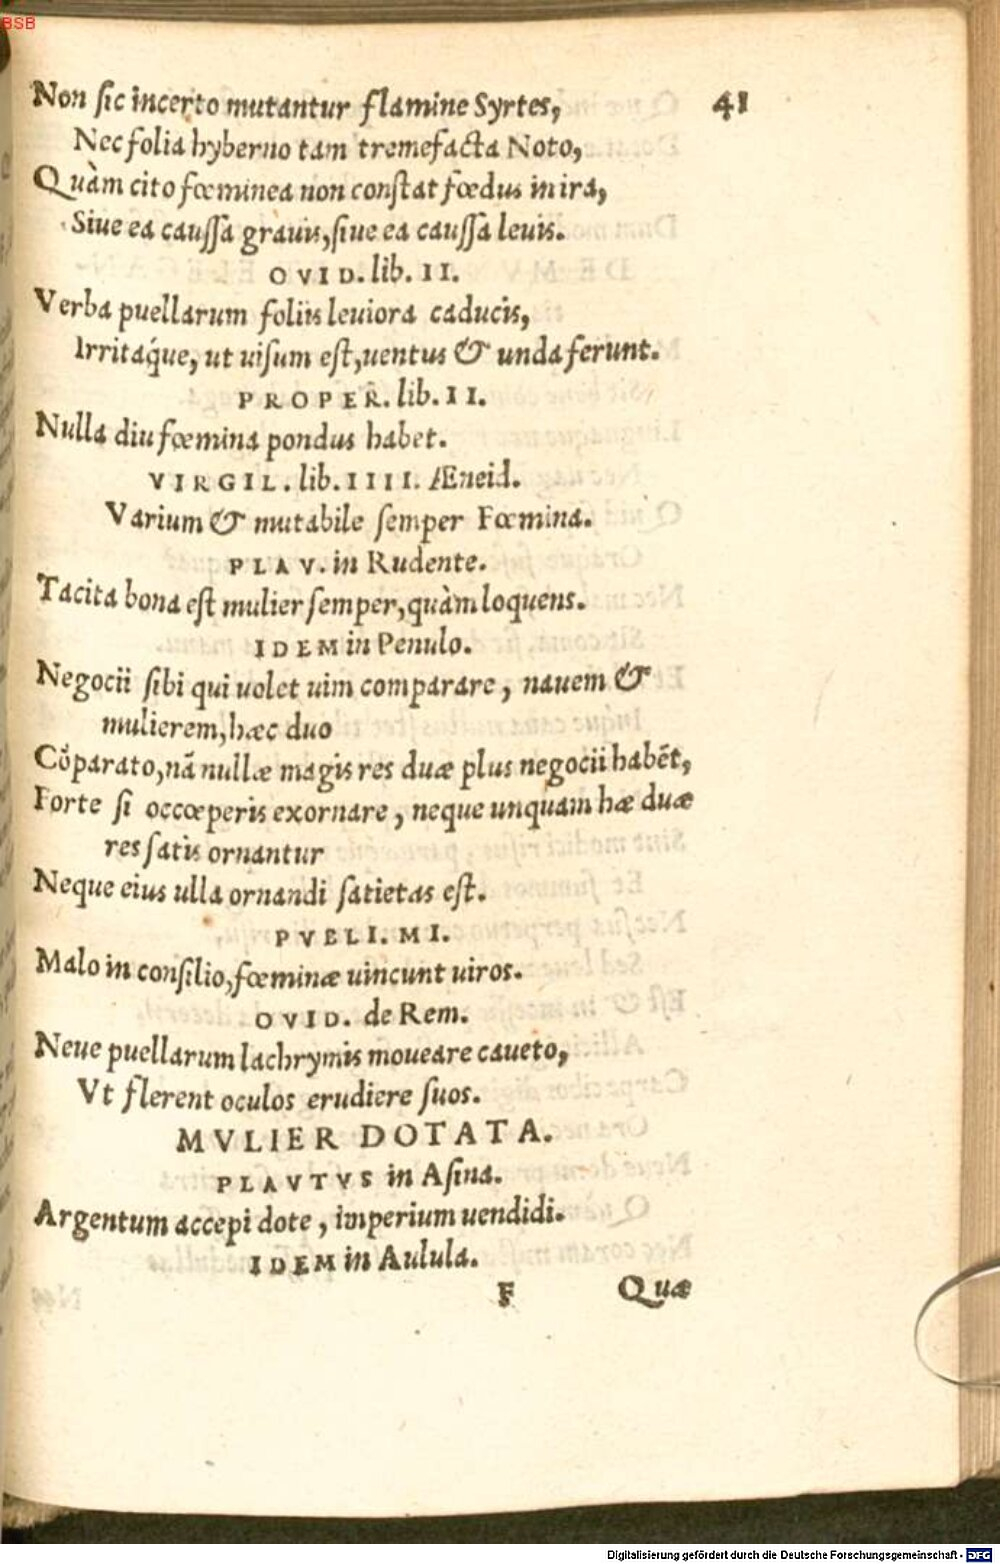 BSB
Non sic incerto mutantur flamine Syrtes, 41
Nec folia hyberno tam tremefacta Noto,
Quàm cito fœminea non constat fœdus in ira,
Siue ea caussa grauis, siue ea caussa leuis.
OVID. lib. II.
Verba puellarum foliis leuiora caducis,
Irritaq́ue, ut uisum est, uentus & unda ferunt.
PROPER. lib. II.
Nulla diu fœmina pondus habet.
VIRGIL. lib. IIII. Æneid.
Varium & mutabile semper Fœmina.
PLAV. in Rudente.
Tacita bona est mulier semper, quàm loquens.
IDEM in Penulo.
Negocii sibi qui uolet uim comparare, nauem &
mulierem, hæc duo
Cōparato, nā nullæ magis res duæ plus negocii habēt,
Forte si occœperis exornare, neque unquam hæ duæ
res satis ornantur
Neque eius ulla ornandi satietas est.
PVBLI. MI.
Malo in consilio, fœminæ uincunt uiros.
OVID. de Rem.
Neue puellarum lachrymis moueare caueto,
Vt flerent oculos erudiere suos.
MVLIER DOTATA.
PLAVTVS in Asina.
Argentum accepi dote, imperium uendidi.
IDEM in Aulula.
F Quæ
Digitalisierung gefördert durch die Deutsche Forschungsgemeinschaft - DFG